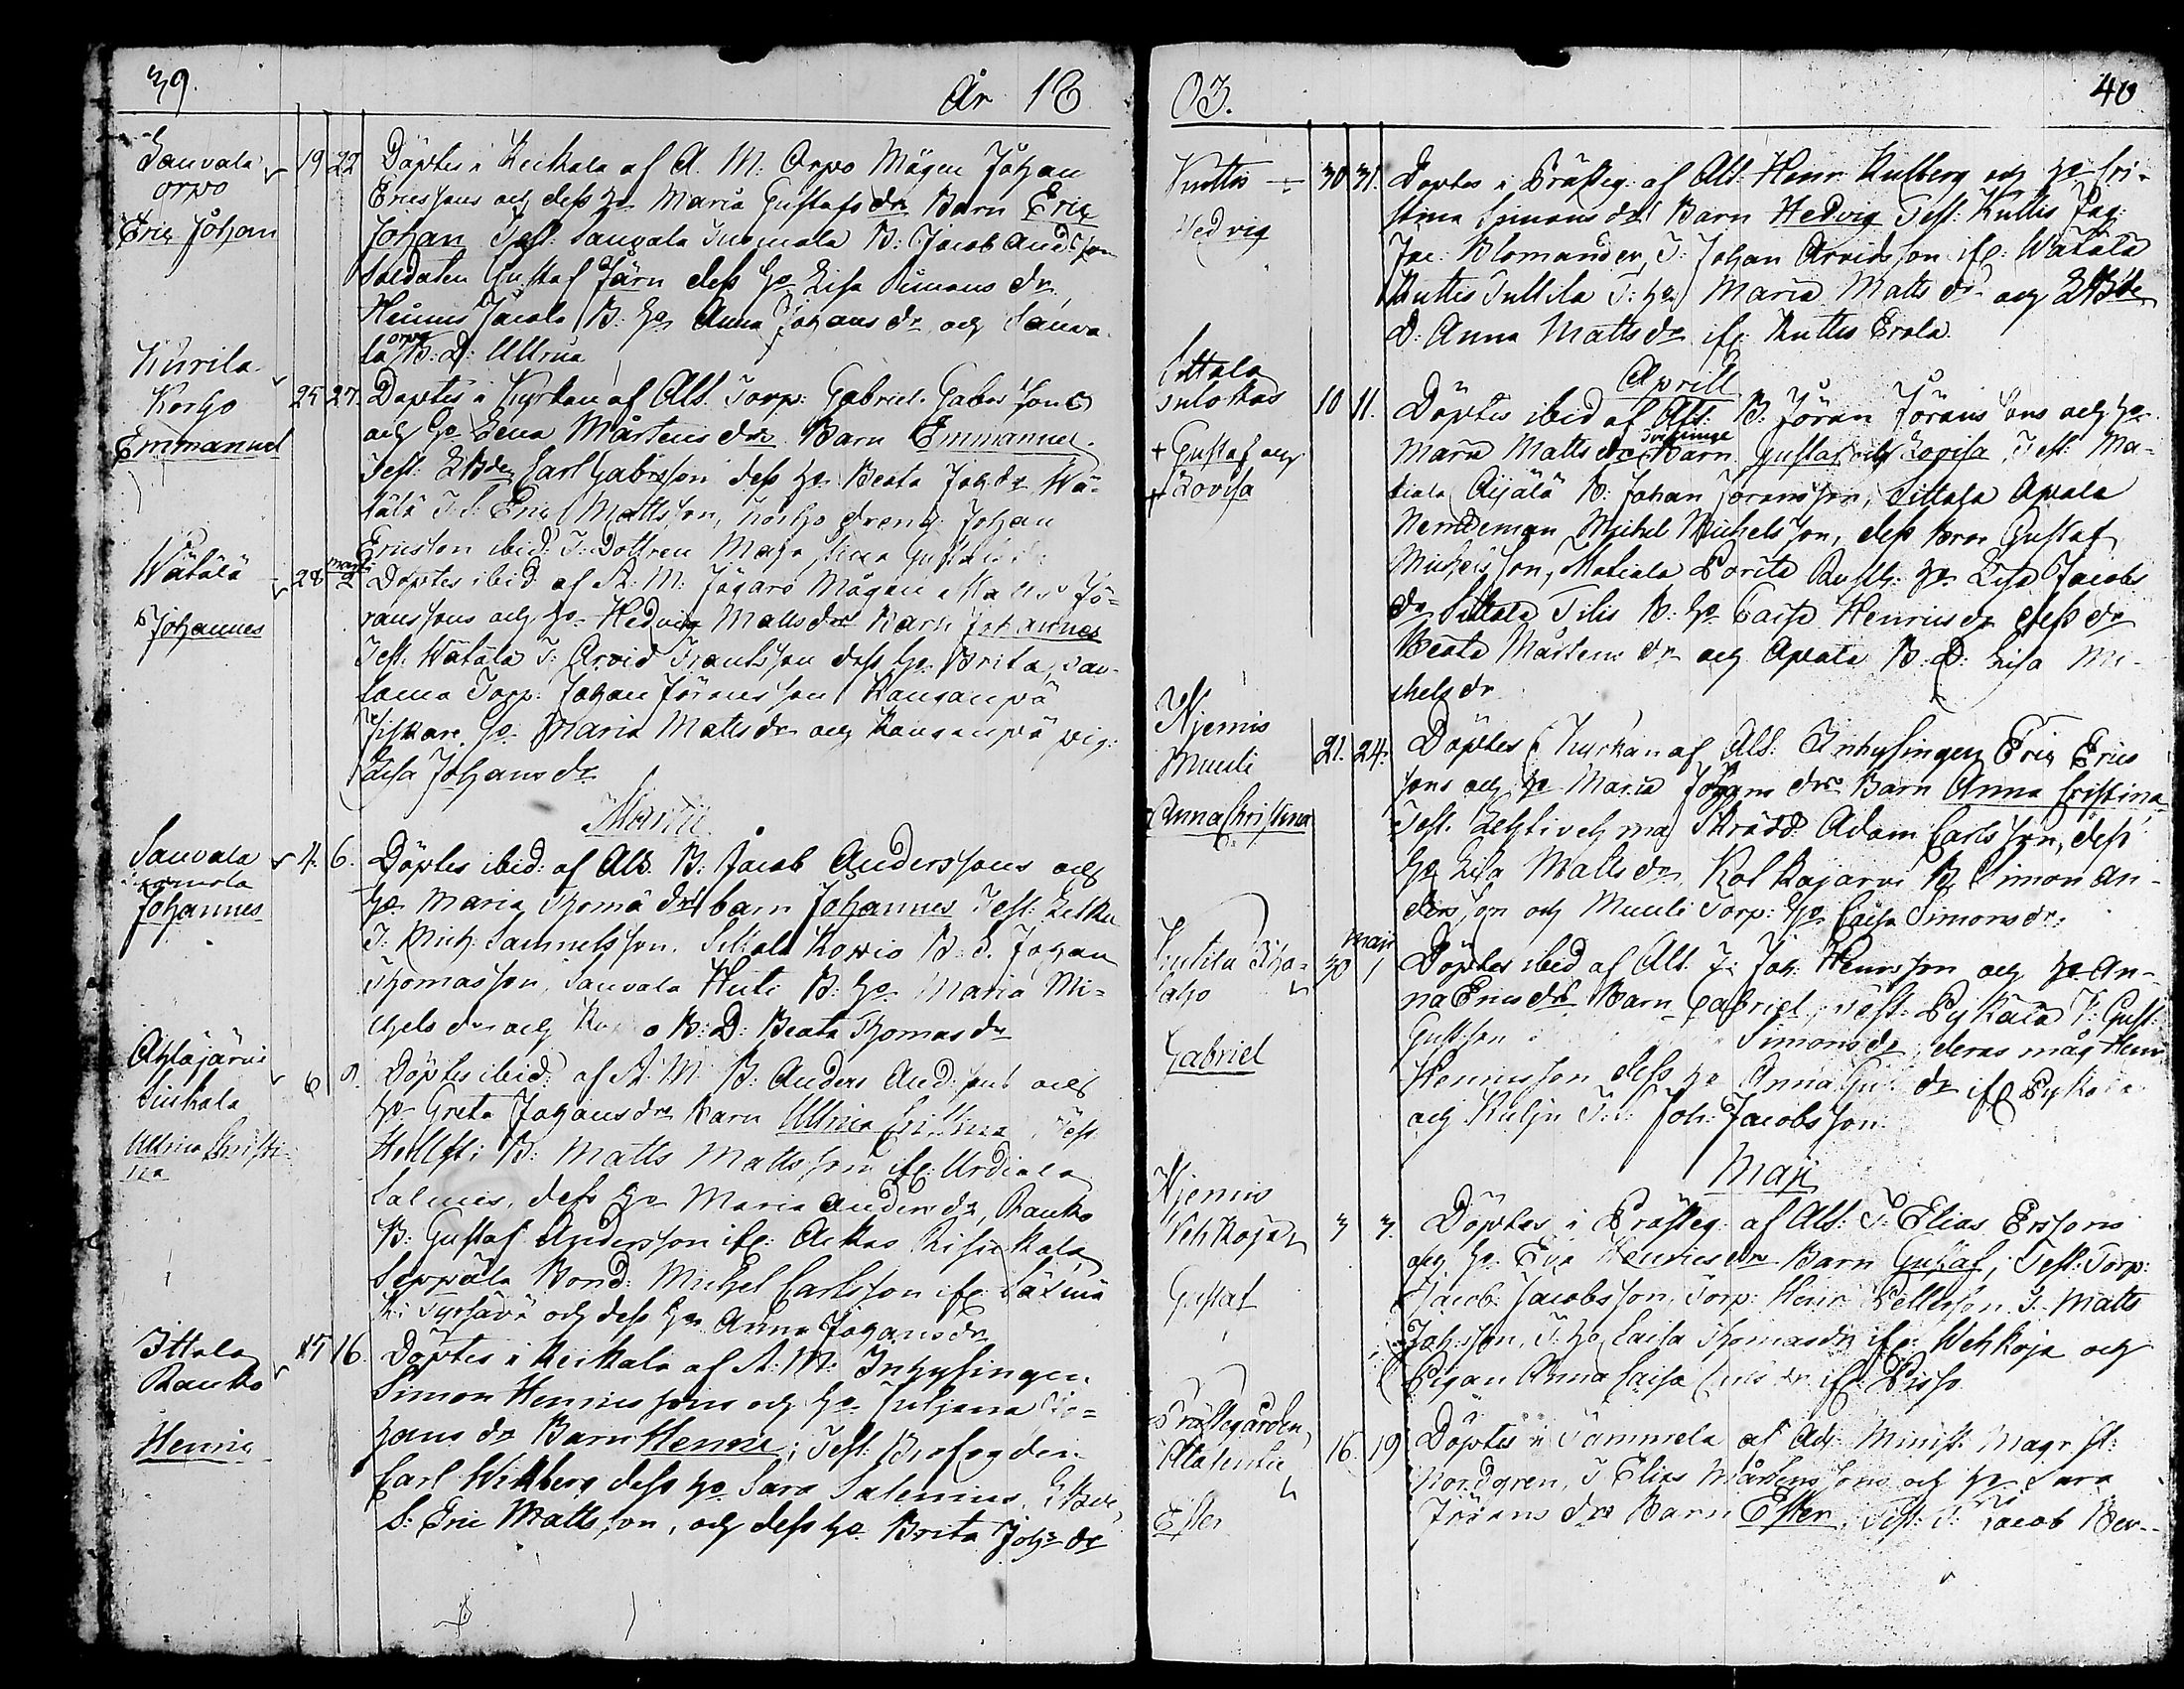 39.
År 18
Sauvala
orpo
Eric Johan
19 22 Döptes i Keikala af A. M. Orpo Mågen Johan
Ericssons och dess h:o Maria Gustafs dr Barn Eric
Johan Test: Sauvala Tuomala B: Jacob Andersson
Soldaten Gustaf Järn dess h:o Lisa Simons dr,
Jacobs B: h:o Anna Johans dr och Sauva
la orpo B: D: Ulrica
Kurila
Korho
Emmanuel
25 27. Döptes i Kyrkan af Alb. Torp: Gabriel Gabrs sons
och h:o Lena Mårtens drs Barn Emmanuel.
Test: Carl Gabrsson dess h:o Beata Joh dr Wä-
tälä T: S: Eric Mattsson, Korho dreng Johan
Ericsson ibid: T: Dottren Maja Stina Gustafs
Wätälä
Johannes
28 Martii 2 Döptes ibid af A: M: Jägars Mågen Matts Jö-
ranssons och h:o Hedvig Matts drs Barn Johannes
Test. Wätälä T: Arvid Frantsson dess h:o Brita,
Torp: Johan Jöransson Kanganpä
Fiskare h:o Maria Matts dr och Kanganpä pig:
Lisa Johans dr
Martii
Sauvala
Johannes
4. 6. Döptes ibid: af Alb. B: Jacob Anderssons och
h:o Maria Thoma drs barn Johannes Test:
T: Mich Samuelsson. Sittala Kowio B: S. Johan
Thomasson, Sauvala Huti B: h:o Maria Mi-
chels dr och B: D: Beata Thomas dr
Ahtäjärvi
Ulrica Christi-
na
6 9. Döptes ibid: af A: M: B: Anders And:sons och
h:o Greta Johans drs Barn Ulrica Cristina, Test
B: Matts Mattsson if: Urdiala
Salmis, dess h:o Maria Anders dr, Rauko
B: Gustaf Andersson if: Ackas
Seppälä Bond: Michel Carlsson if:
och dess h:o Anna Johans dr
Ittala
Rauko
Henric
15 16. Döptes i Keikala af A: M: Inhysingen
Simon Henricssons och h:o Juliana Jo-
hans dr Barn Henric; Test: Brofogden
Carl Wikberg dess h:o Sara Salenius,
S: Eric Mattsson, och dess h:o Brita Joh: dr
03.
40
Kuttis
Hedvig
30 31. Döptes i Prästeg: af Alb. Henr. Kulberg och h:o Cri-
stina Simons drs Barn Hedvig Test: Kuttis Jäg:
Jac: Blomander, T: Johan Arvidsson if: Wätälä
Kuttis Tullila T: h:o Maria Matts dr och
D: Anna Matts dr if: Kuttis Erola.
Aprill
Sittala
+ Gustaf och
+ Lovisa
10 11. Döptes ibid af Alb: B: Jöran Jörans sons och h:o
Maria Matts drs Tvillinge Barn Gustaf och Lovisa, Test: Ma-
tiala Äijälä B: Johan Jöransson, Sittala Apala
Nemdeman Michel Michelsson, dess Bror Gustaf
Michelsson, Matiala h:o Lisa Jacobs
dr Sittala Tilis B: h:o Caisa Henrics dr dess dr
Beata Mårtens dr och Apala B: D: Lisa Mi-
chels dr
Njemis
Muuli
Anna Christina
21. 24. Döptes i Kyrkan af Alb: Inhysingen Eric Erics
sons och h:o Maria Johans drs Barn Anna Cristina
Test. Skrädd: Adam Carlsson, dess
h:o Lisa Matts dr, Kolkajärvi B: Simon An-
dersson och Muuli Torp: h:o Caisa Simons dr.
Gabriel
30 Maji 1 Döptes ibid af Alb. T: Joh: Henrsson och h:o An-
na Erics drs Barn Gabriel, Test: Pykälä T: Gust:
Gustsson Simons dr, deras måg Henr
Henricsson dess h:o Anna dr if Pykälä
och T: Joh: Jacobsson.
Maji
Njemis
Wehkoja
Gustaf
3 3. Döptes i Prästeg: af Alb: T: Elias Erssons
och h:o Eva Henrics drs Barn Gustaf, Test: Torp:
Jacob: Jacobsson, Torp: Henr: Pettersson T: Matts
Johsson, T: h:o Caisa Thomas dr if: Wehkoja och
Pigan Anna Caisa dr if:
Prästegården
Ester
16 19 Döptes i Tammela af Adj: Minist: Magr
Nordgren, T: Elias Mårtenssons och h:o Sara
Jörans drs Barn Ester, Test: T: Jacob Ber-